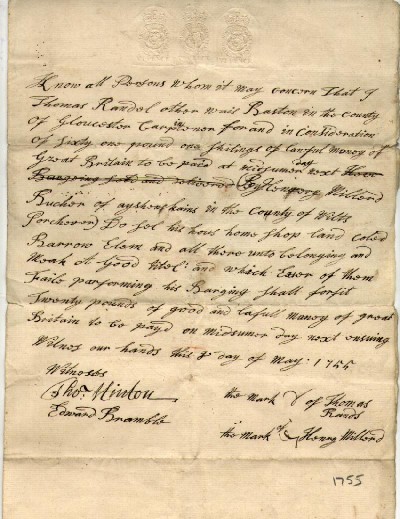 Know all Persons Whom it may Concern That I
Thomas Randol other wais Baston in the County
of Gloucester Carpinener for and in Consideration
of Sixty one pound one shilings of Lawful Money of
Great Britain to be paid at midsumer day next
By Henery Millerd
Bucher of in the County of Wilts
Do sel his hous home Shop land Coled
Barrow Elem and all there unto belonging and
Meak A Good titel: and which Ever of them
Faile parforming his Barging Shall forfit
Twenty pounds of good and lafull money of great
Britain to be payd on midsumer day next ensuing
Witnes our hands this 3d day of May: 1755
Witneses
Thos. Hinton
Edward Bramble
the Mark of Thomas
Rands
the mark of Henry Millerd
1755